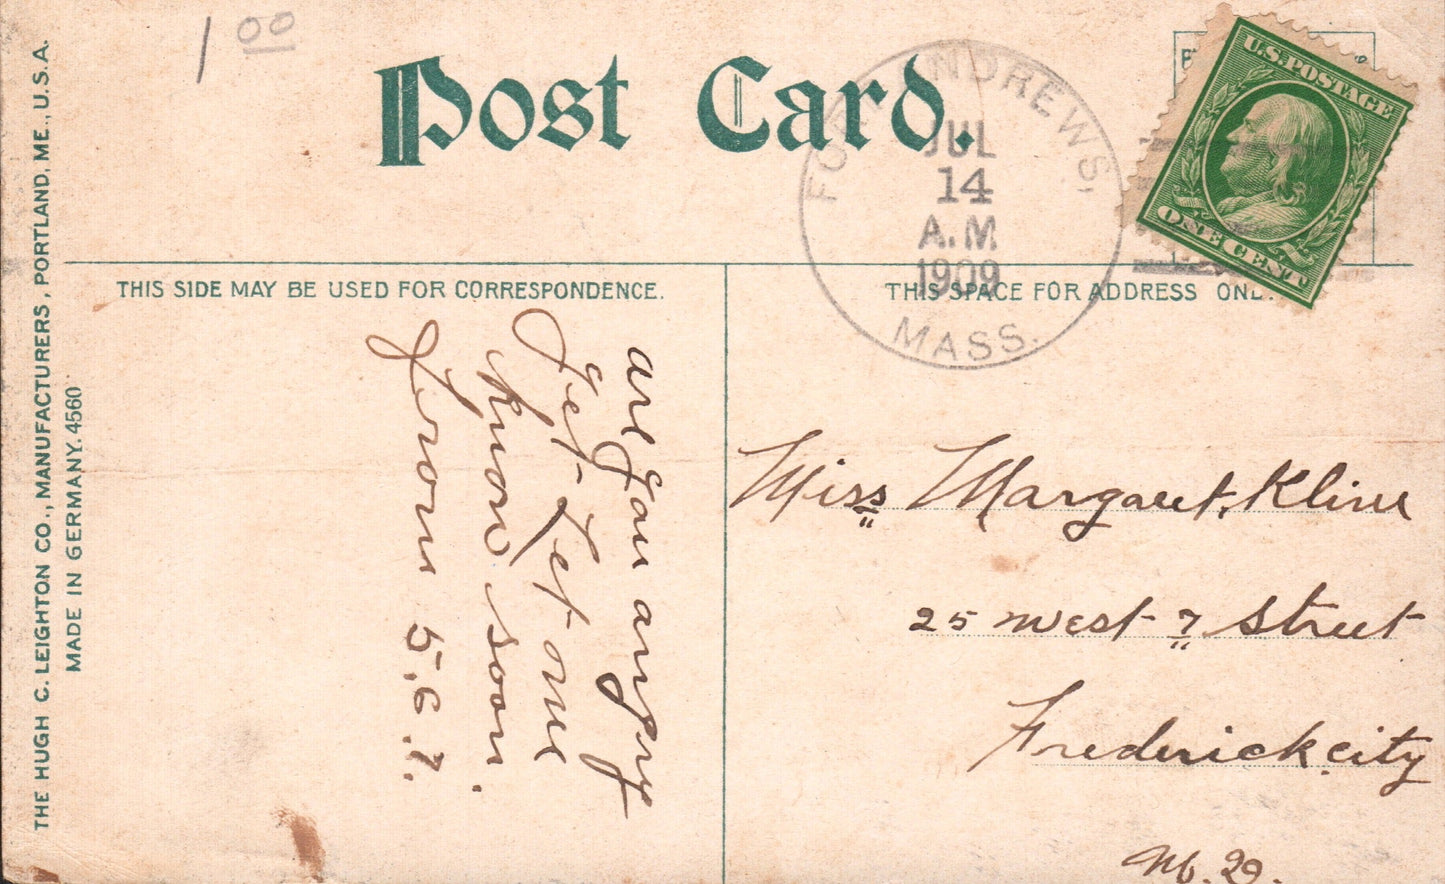 1 00
Post Card.
FORT ANDREWS,
JUL
14
A.M
1909
MASS.
U.S. POSTAGE
ONE CENT
THIS SIDE MAY BE USED FOR CORRESPONDENCE.
THIS SPACE FOR ADDRESS ONL
THE HUGH C. LEIGHTON CO., MANUFACTURERS, PORTLAND, ME., U.S.A.
MADE IN GERMANY. 4560
are you angry
yet Let me
know soon.
From 5.6.7.
Miss Margaret Kline
25 West 7 Street
Frederick city
Md.